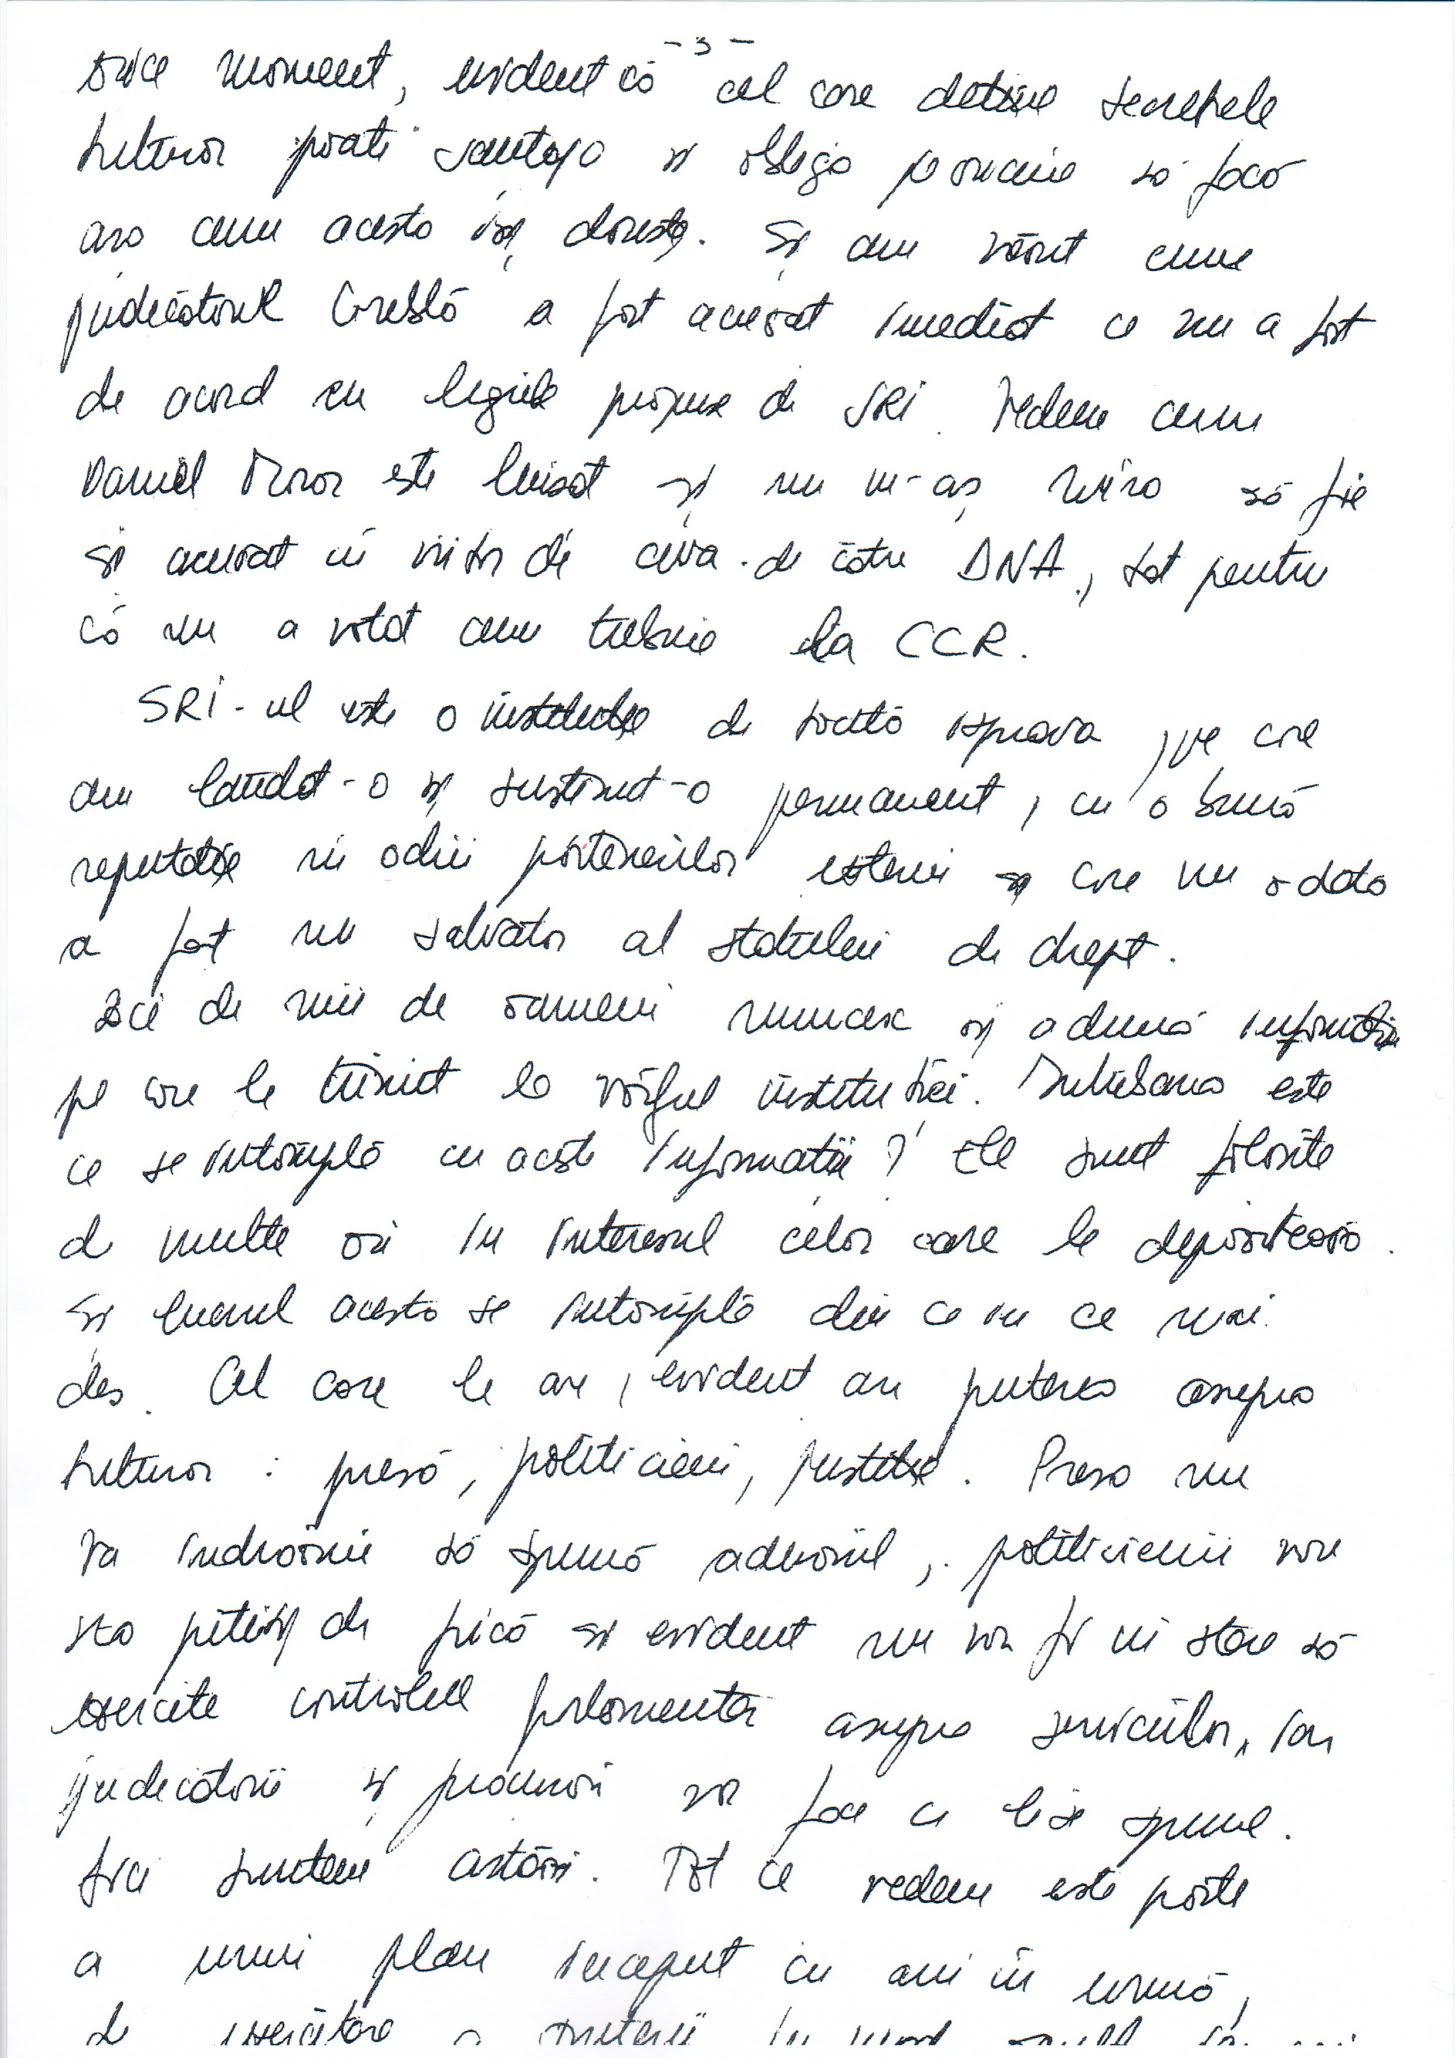 - 3 -
orice moment, evident că cel care deține secretele
tuturor poate șantaja și obliga pe oricine să facă
așa cum acesta își dorește. Și am văzut cum
judecătorul Greblă a fost acuzat imediat ce nu a fost
de acord cu legile propuse de SRI. Vedem cum
Daniel Morar este linșat și nu m-aș mira să fie
și acuzat în viitor de ceva de către DNA, tot pentru
că nu a votat cum trebuie la CCR.
SRI-ul este o instituție de toată isprava pe care
am lăudat-o și susținut-o permanent, cu o bună
reputație în ochii partenerilor externi și care nu odată
a fost un salvator al statului de drept.
Zeci de mii de oameni muncesc și adună informații
pe care le trimit la vârful instituției. Întrebarea este
ce se întâmplă cu aceste informații? Ele sunt folosite
de multe ori în interesul celor care le depozitează.
Și lucrul acesta se întâmplă din ce în ce mai
des. Cel care le are, evident are puterea asupra
tuturor: presă, politicieni, justiție. Presa nu
va îndrăzni să spună adevărul, politicienii vor
sta pitiți de frică și evident nu vor fi în stare să
exercite controlul parlamentar asupra serviciilor, iar
judecătorii și procurorii vor face ce li se spune.
Aici suntem astăzi. Tot ce vedem este parte
a unui plan început cu ani în urmă,
de exercitare a puterii în mod